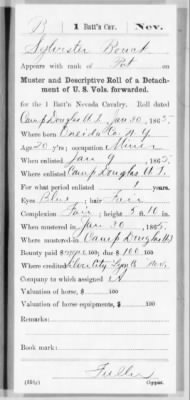 B | 1 Batt'n Cav. | Nev.
Sylvester Bouck
Appears with rank of Pvt on
Muster and Descriptive Roll of a Detach-
ment of U. S. Vols. forwarded.
for the 1 Batt'n Nevada Cavalry. Roll dated
Camp Douglas U.T. Jan 30, 1865.
Where born Oneida Co. N.Y.
Age 20 y'rs; occupation Miner
When enlisted Jan 9, 1865.
Where enlisted Camp Douglas U.T.
For what period enlisted 1 years.
Eyes Blue; hair Fair
Complexion Fair; height 5 ft. 10 in.
When mustered in Jan 30, 1865.
Where mustered in Camp Douglas U.T.
Bounty paid $ 100; due $ 100 100
Where credited City Co. Nev.
Company to which assigned
Valuation of horse, $ 100
Valuation of horse equipments, $ 100
Remarks:
Book mark:
Fuller
(339) Copyist.